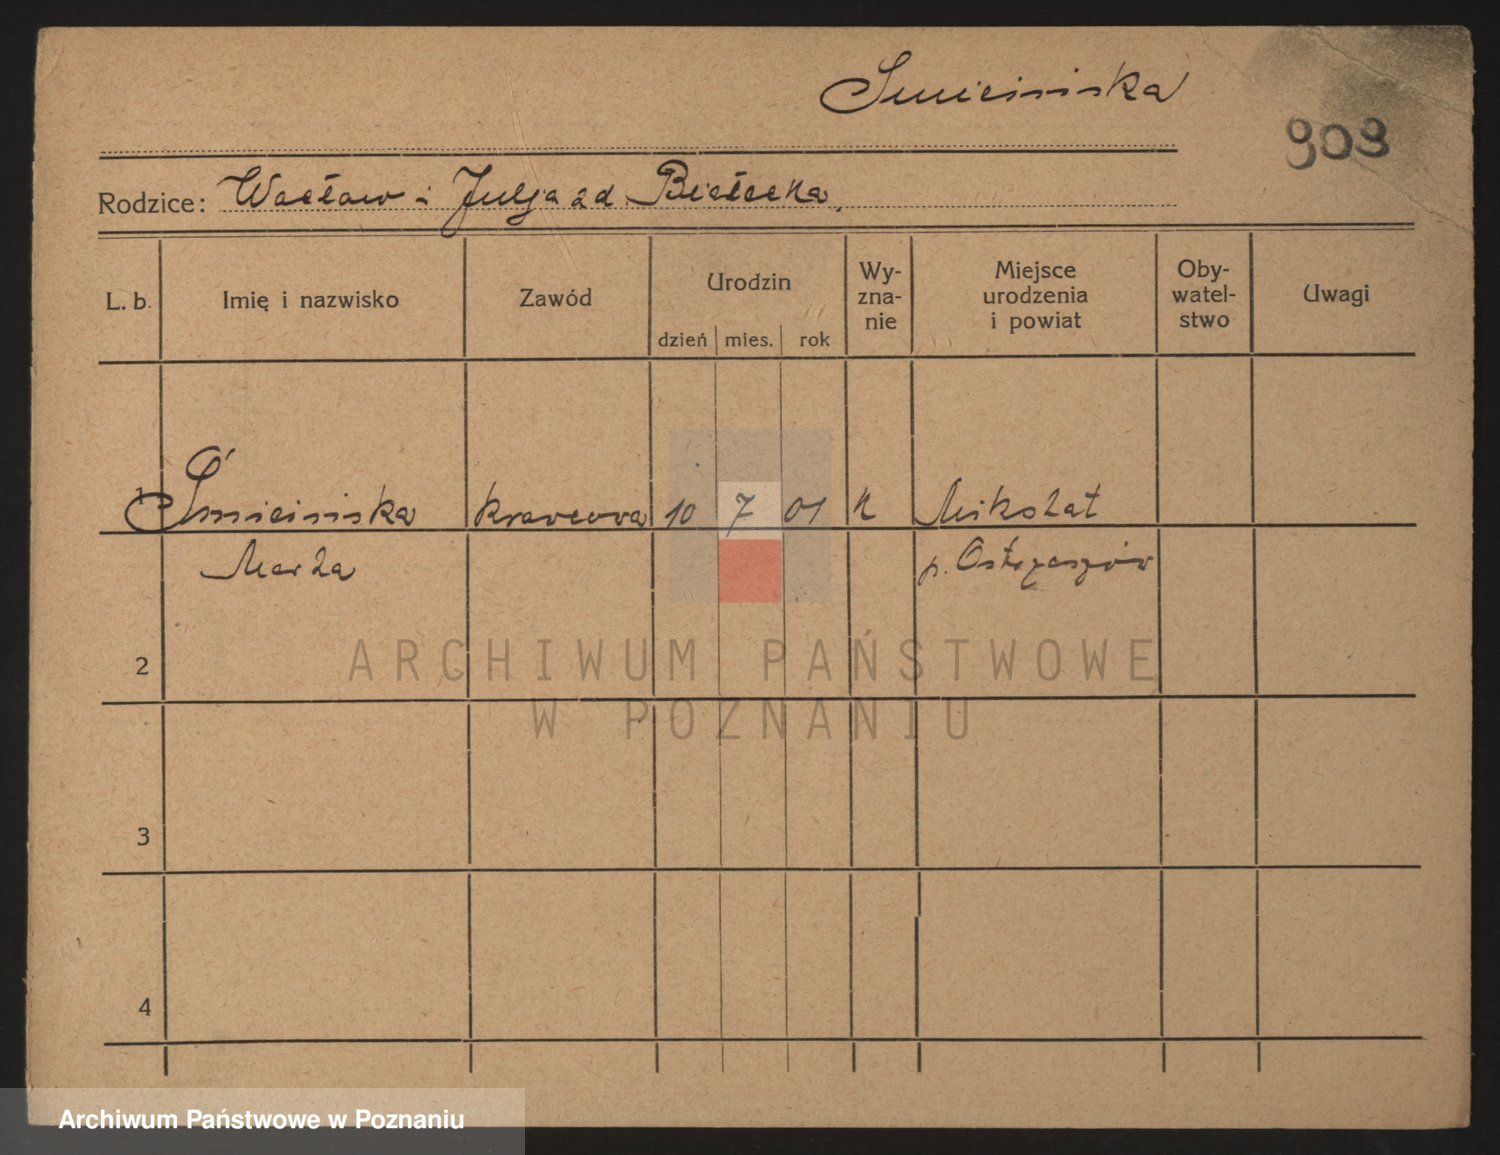 Smicińska
909
Rodzice: Wacław i Julja zd Bielecka.
L. b. Imię i nazwisko Zawód Urodzin dzień mies. rok Wy-zna-nie Miejsce urodzenia i powiat Oby-watel-stwo Uwagi
1 Śmicińska krawcowa 10 7 01 k Mikstat
Marta p. Ostrzeszów
2
ARCHIWUM PAŃSTWOWE
W POZNANIU
3
4
Archiwum Państwowe w Poznaniu